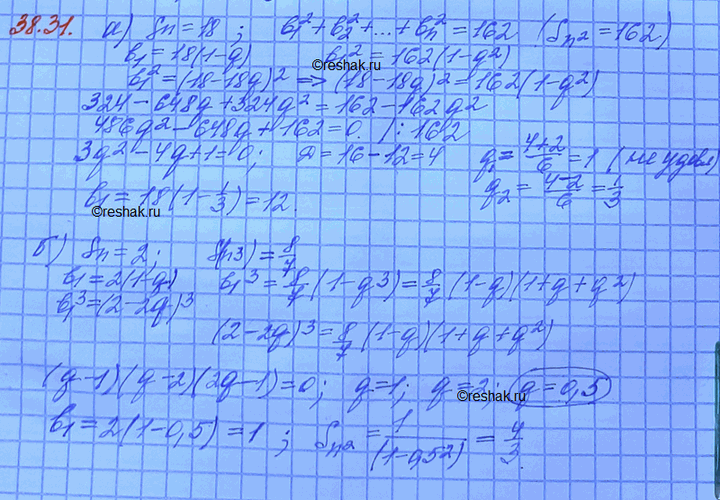 38.31. а) Sn = 18; b₁² + b₂² + ... + bn² = 162 (Sn² = 162)
b₁ = 18(1-q) b₁² = 162(1-q²)
©reshak.ru
b₁² = (18-18q)² => (18-18q)² = 162(1-q²)
324 - 648q + 324q² = 162 - 162q²
486q² - 648q + 162 = 0 /: 162
3q² - 4q + 1 = 0; D = 16 - 12 = 4 q₁ = (4+2)/6 = 1 (не удовл)
q₂ = (4-2)/6 = 1/3
b₁ = 18(1 - 1/3) = 12.
©reshak.ru
б) Sn = 2; S(n3) = 8/7
b₁ = 2(1-q) b₁³ = 8/7 (1-q³) = 8/7 (1-q)(1+q+q²)
b₁³ = (2-2q)³
(2-2q)³ = 8/7 (1-q)(1+q+q²)
(q-1)(q-2)(2q-1) = 0; q = 1; q = 2; q = 0,5
©reshak.ru
b₁ = 2(1-0,5) = 1; Sn² = 1/(1-0,5²) = 4/3.